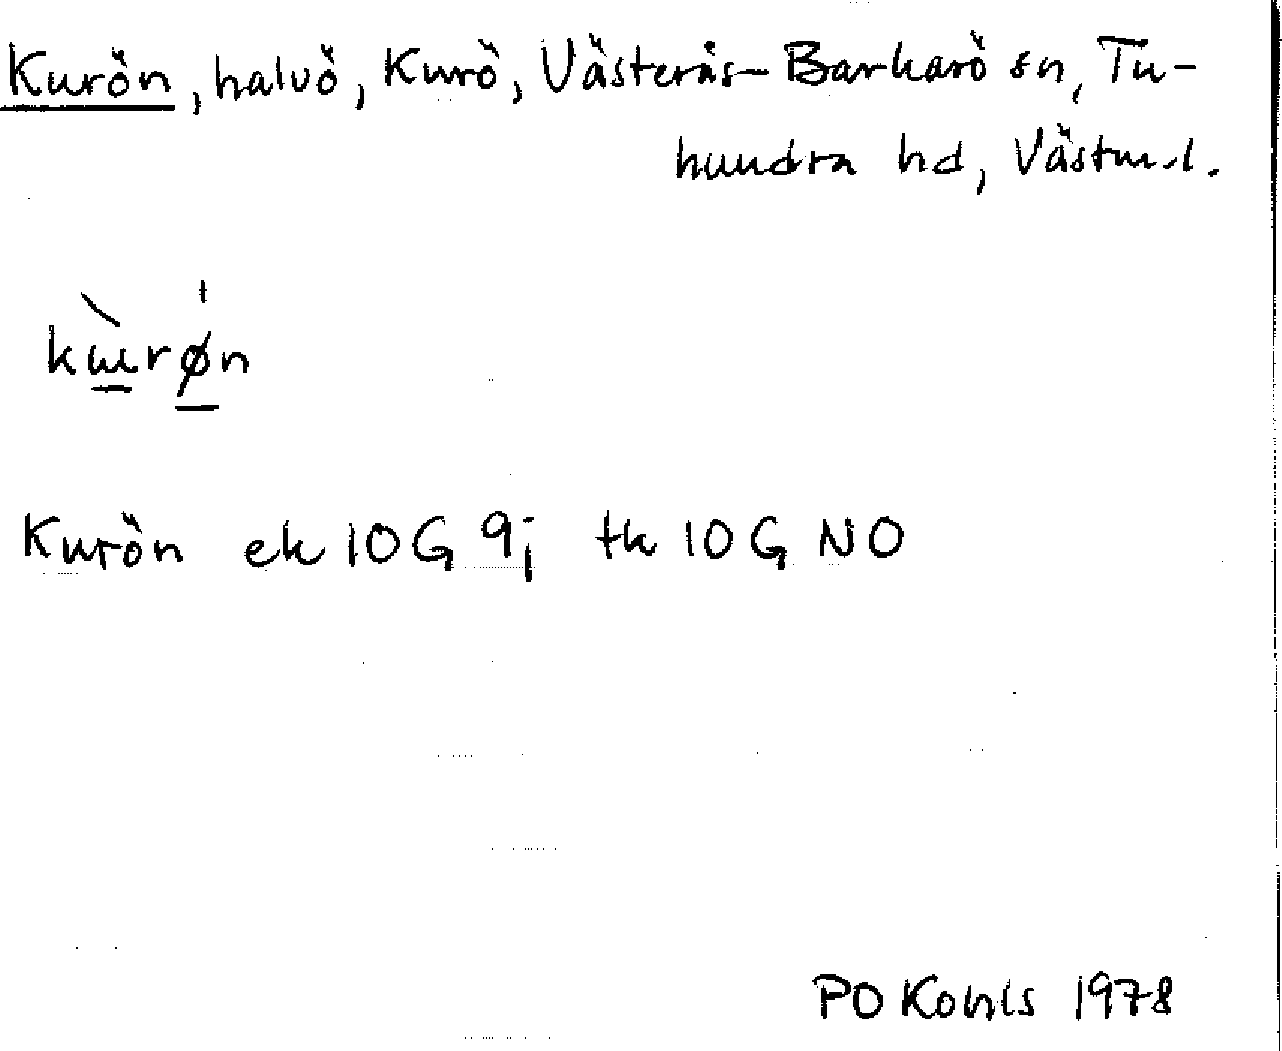 Kurön, halvö, Kurö, Västerås-Barkarö sn, Tu-
hundra hd, Västm.l.
kɯ̀røn
Kurön ek 10 G 9j tk 10 G NO
1978